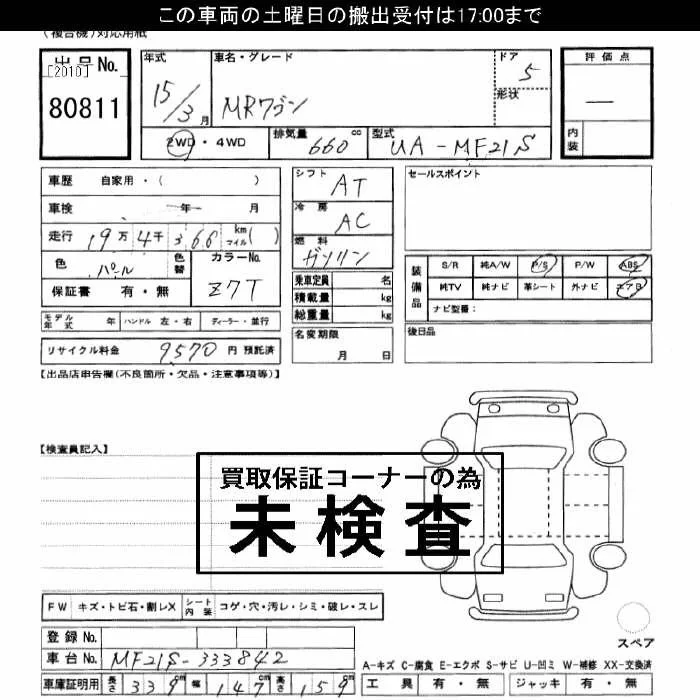 この車両の土曜日の搬出受付は17:00まで
(複合機)対応用紙
出品No.
[2010]
80811
年式
15/3月
車名・グレード
MRワゴン
ドア
5
形状
評価点
―
内装
2WD・4WD
排気量
660 cc
型式
UA-MF21S
車歴 自家用・( )
車検 年 月
走行 19万4千366 km マイル( )
色 パール
色替
カラーNo.
Z7T
保証書 有・無
シフト
AT
冷房
AC
燃料
ガソリン
乗車定員 名
積載量 kg
総重量 kg
セールスポイント
装備品
S/R 純A/W P/S P/W ABS
純TV 純ナビ 革シート 外ナビ エアB
ナビ型番:
モデル年式 年 ハンドル 左・右 ディーラー・並行
名変期限
月 日
後日品
リサイクル料金 9570 円 預託済
【出品店申告欄(不良箇所・欠品・注意事項等)】
【検査員記入】
買取保証コーナーの為
未検査
FW キズ・トビ石・割レX シート内装 コゲ・穴・汚レ・シミ・破レ・スレ
スペア
登録No.
車台No. MF21S-333842
A-キズ C-腐食 E-エクボ S-サビ U-凹ミ W-補修 XX-交換済
車庫証明用 長さ 339cm 幅 147cm 高さ 159
工具 有・無 ジャッキ 有・無